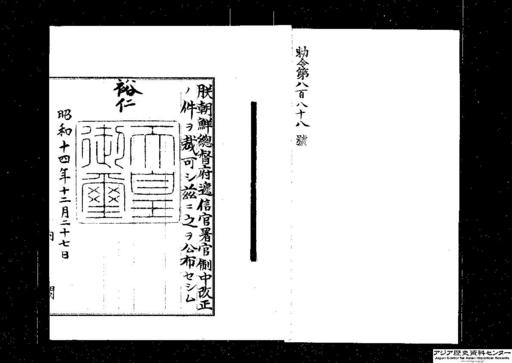 勅令第八百八十八號
朕朝鮮總督府遞信官署官制中改正
ノ件ヲ裁可シ茲ニ之ヲ公布セシム
裕仁
天皇御璽
昭和十四年十二月二十七日
内閣
アジア歴史資料センター
Japan Center for Asian Historical Records